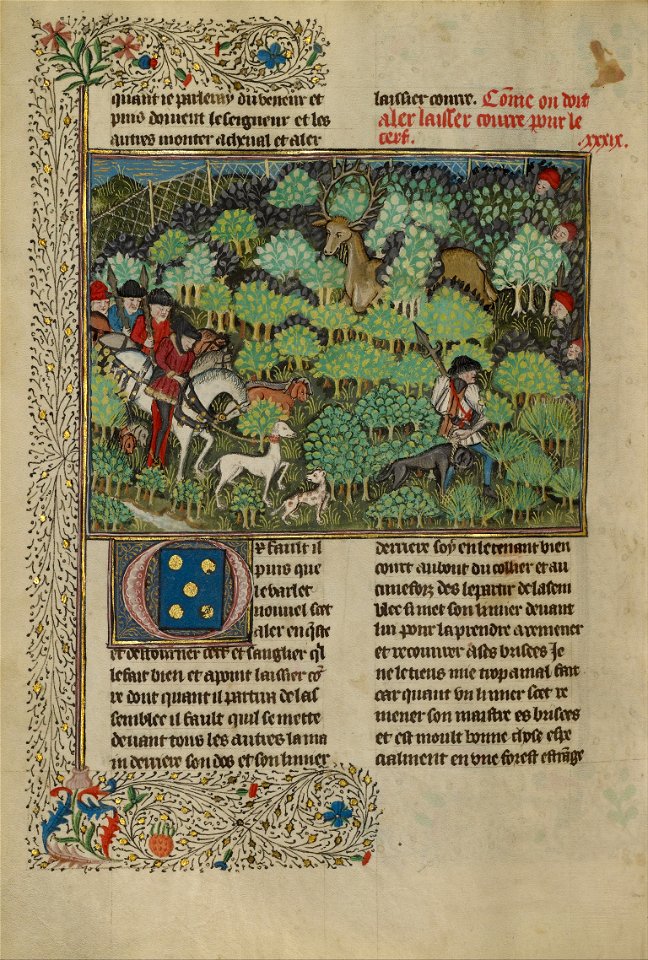 quant ie parleray du veneur et
puis doivent le seigneur et les
autres monter a cheval et aler
laissier courre. Cõme on doit
aler laisser courre pour le
cerf. .xxxix.
Or fault il
puis que
le varlet
nouvel scet
aler en q̃ste
et destourner cerf et sanglier q̃l
le fait bien et a point laissier cõ
re dont quant il partira de las
semblee il fault quil se mette
devant tous les autres la ma
in derriere son dos et son limier
derriere soy en le tenant bien
court au bout du collier et au
des le partir de lasem
blee si met son limier devant
lui pour la prendre a remener
et recouvrer a ses brisees Je
ne le tiens mie trop a mal fait
car quant un limier scet re
mener son maistre es brisees
et est moult bonne chose espe
cialment en une forest estrãge